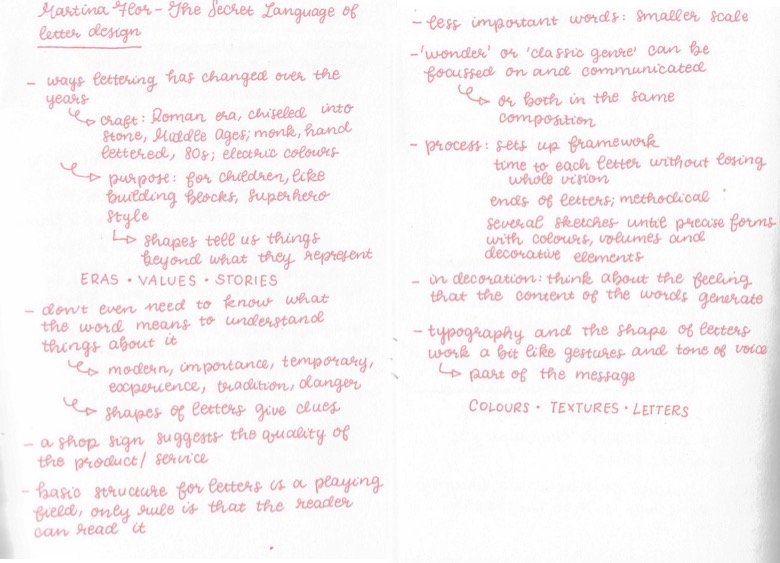 Martina Flor - The Secret Language of
letter design
- ways lettering has changed over the
years
craft: Roman era, chiseled into
stone, Middle Ages; monk, hand
lettered, 80s; electric colours
purpose: for children, like
building blocks, superhero
style
shapes tell us things
beyond what they represent
ERAS · VALUES · STORIES
- don't even need to know what
the word means to understand
things about it
modern, importance, temporary,
experience, tradition, danger
shapes of letters give clues
- a shop sign suggests the quality of
the product/ service
- basic structure for letters is a playing
field, only rule is that the reader
can read it
- less important words: smaller scale
- 'wonder' or 'classic genre' can be
focussed on and communicated
or both in the same
composition
- process: sets up framework
time to each letter without losing
whole vision
ends of letters; methodical
several sketches until precise forms
with colours, volumes and
decorative elements
- in decoration: think about the feeling
that the content of the words generate
- typography and the shape of letters
work a bit like gestures and tone of voice
part of the message
COLOURS · TEXTURES · LETTERS